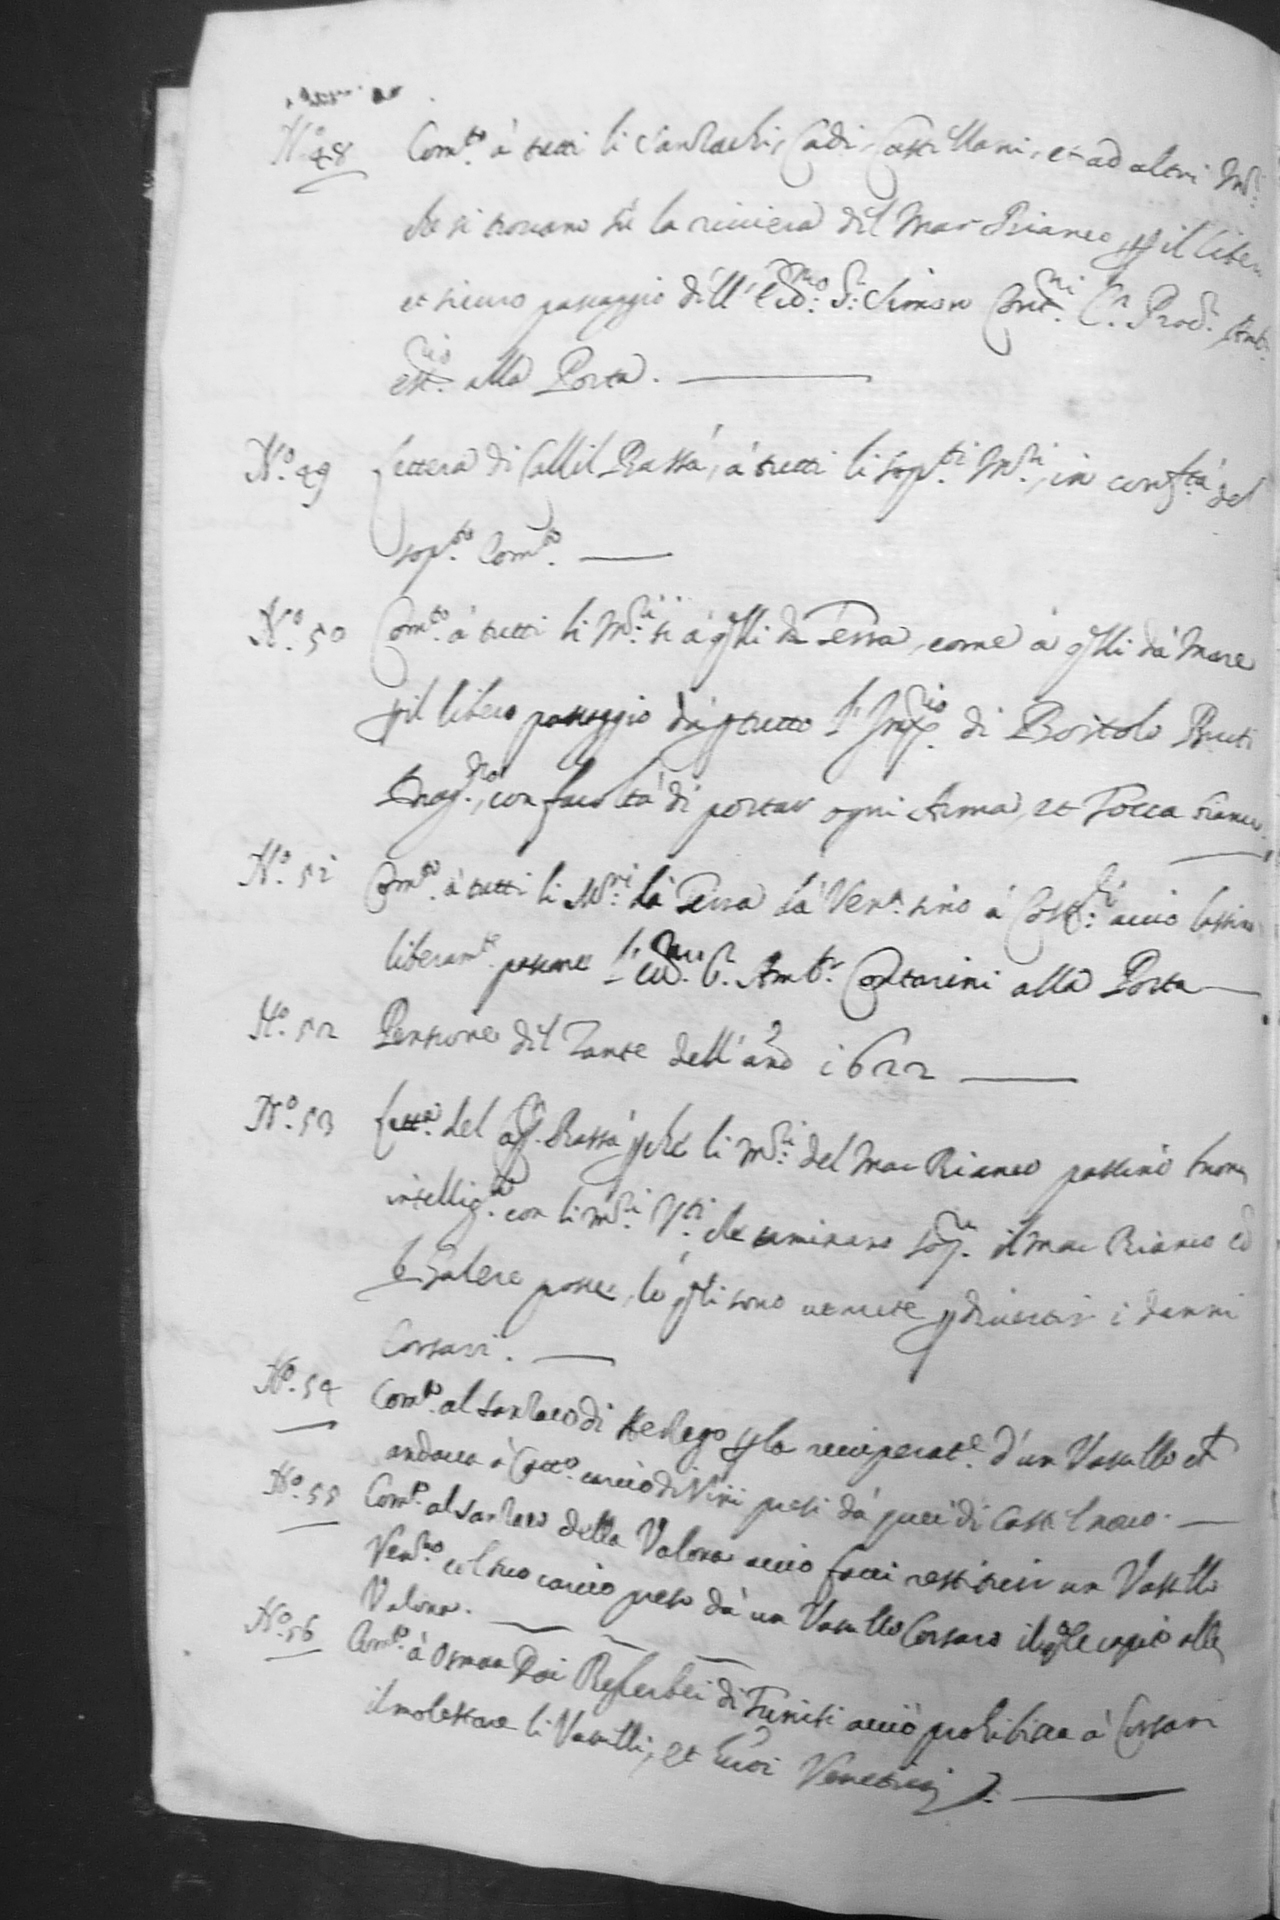 N.º 48 Com.to à tutti li Sanzachi, Cadi, Castellani, et ad altri M.ri
che si trovano sù la riviera dil Mar Bianco, p il liber
et sicuro passaggio dell' Ecc.mo S.r Simon Cont.ni C.r Proc.r Amb.r
est.rio alla Porta.
N.º 49 Lettera di Callil Bassà, à tutti li sop.ti M.ri, in conf.tà del
sop.to Com.to
N.º 50 Com.to à tutti li M.ri si à q̃lli da Terra, come à q̃lli dà Mare
p il libero passaggio dà p tutto l' Imp.rio di Bortolo Bruti
Drag.no, con facoltà di portar ogni Arma, et Tocca bianca.
N.º 51 Com.to à tutti li M.ri dà Terra dà Ven.a sino à Cost.li acciò lassino
liberam.te passare l' Ecc.mo S.r Amb.r Contarini alla Porta
N.º 52 Pensione dil Zante dell' año 1622
N.º 53 Lett.a del Bassà p che li M.ri del Mar Bianco passino buona
intellig.a con li M.ri V.ti che caminano sop.a il Mar Bianco co
le Galere, le q̃li sono p divertir i danni
Corsari.
N.º 54 Com.to al Sanzaco di Herzego p la recuperat.e d'un Vassello et
andava à carico di Vini presi dà di Castel novo.
N.º 55 Com.to al Sanzaco della Valona acciò facci restituir un Vassello
Ven.no col suo carico preso dà un Vassello Corsaro il q̃le capitò alla
Valona.
N.º 56 Com.to à Osman Dai Beglerbei di Tunisi acciò prohibisca à Corsari
il molestare li Vasselli, et Luoi Venetiani.